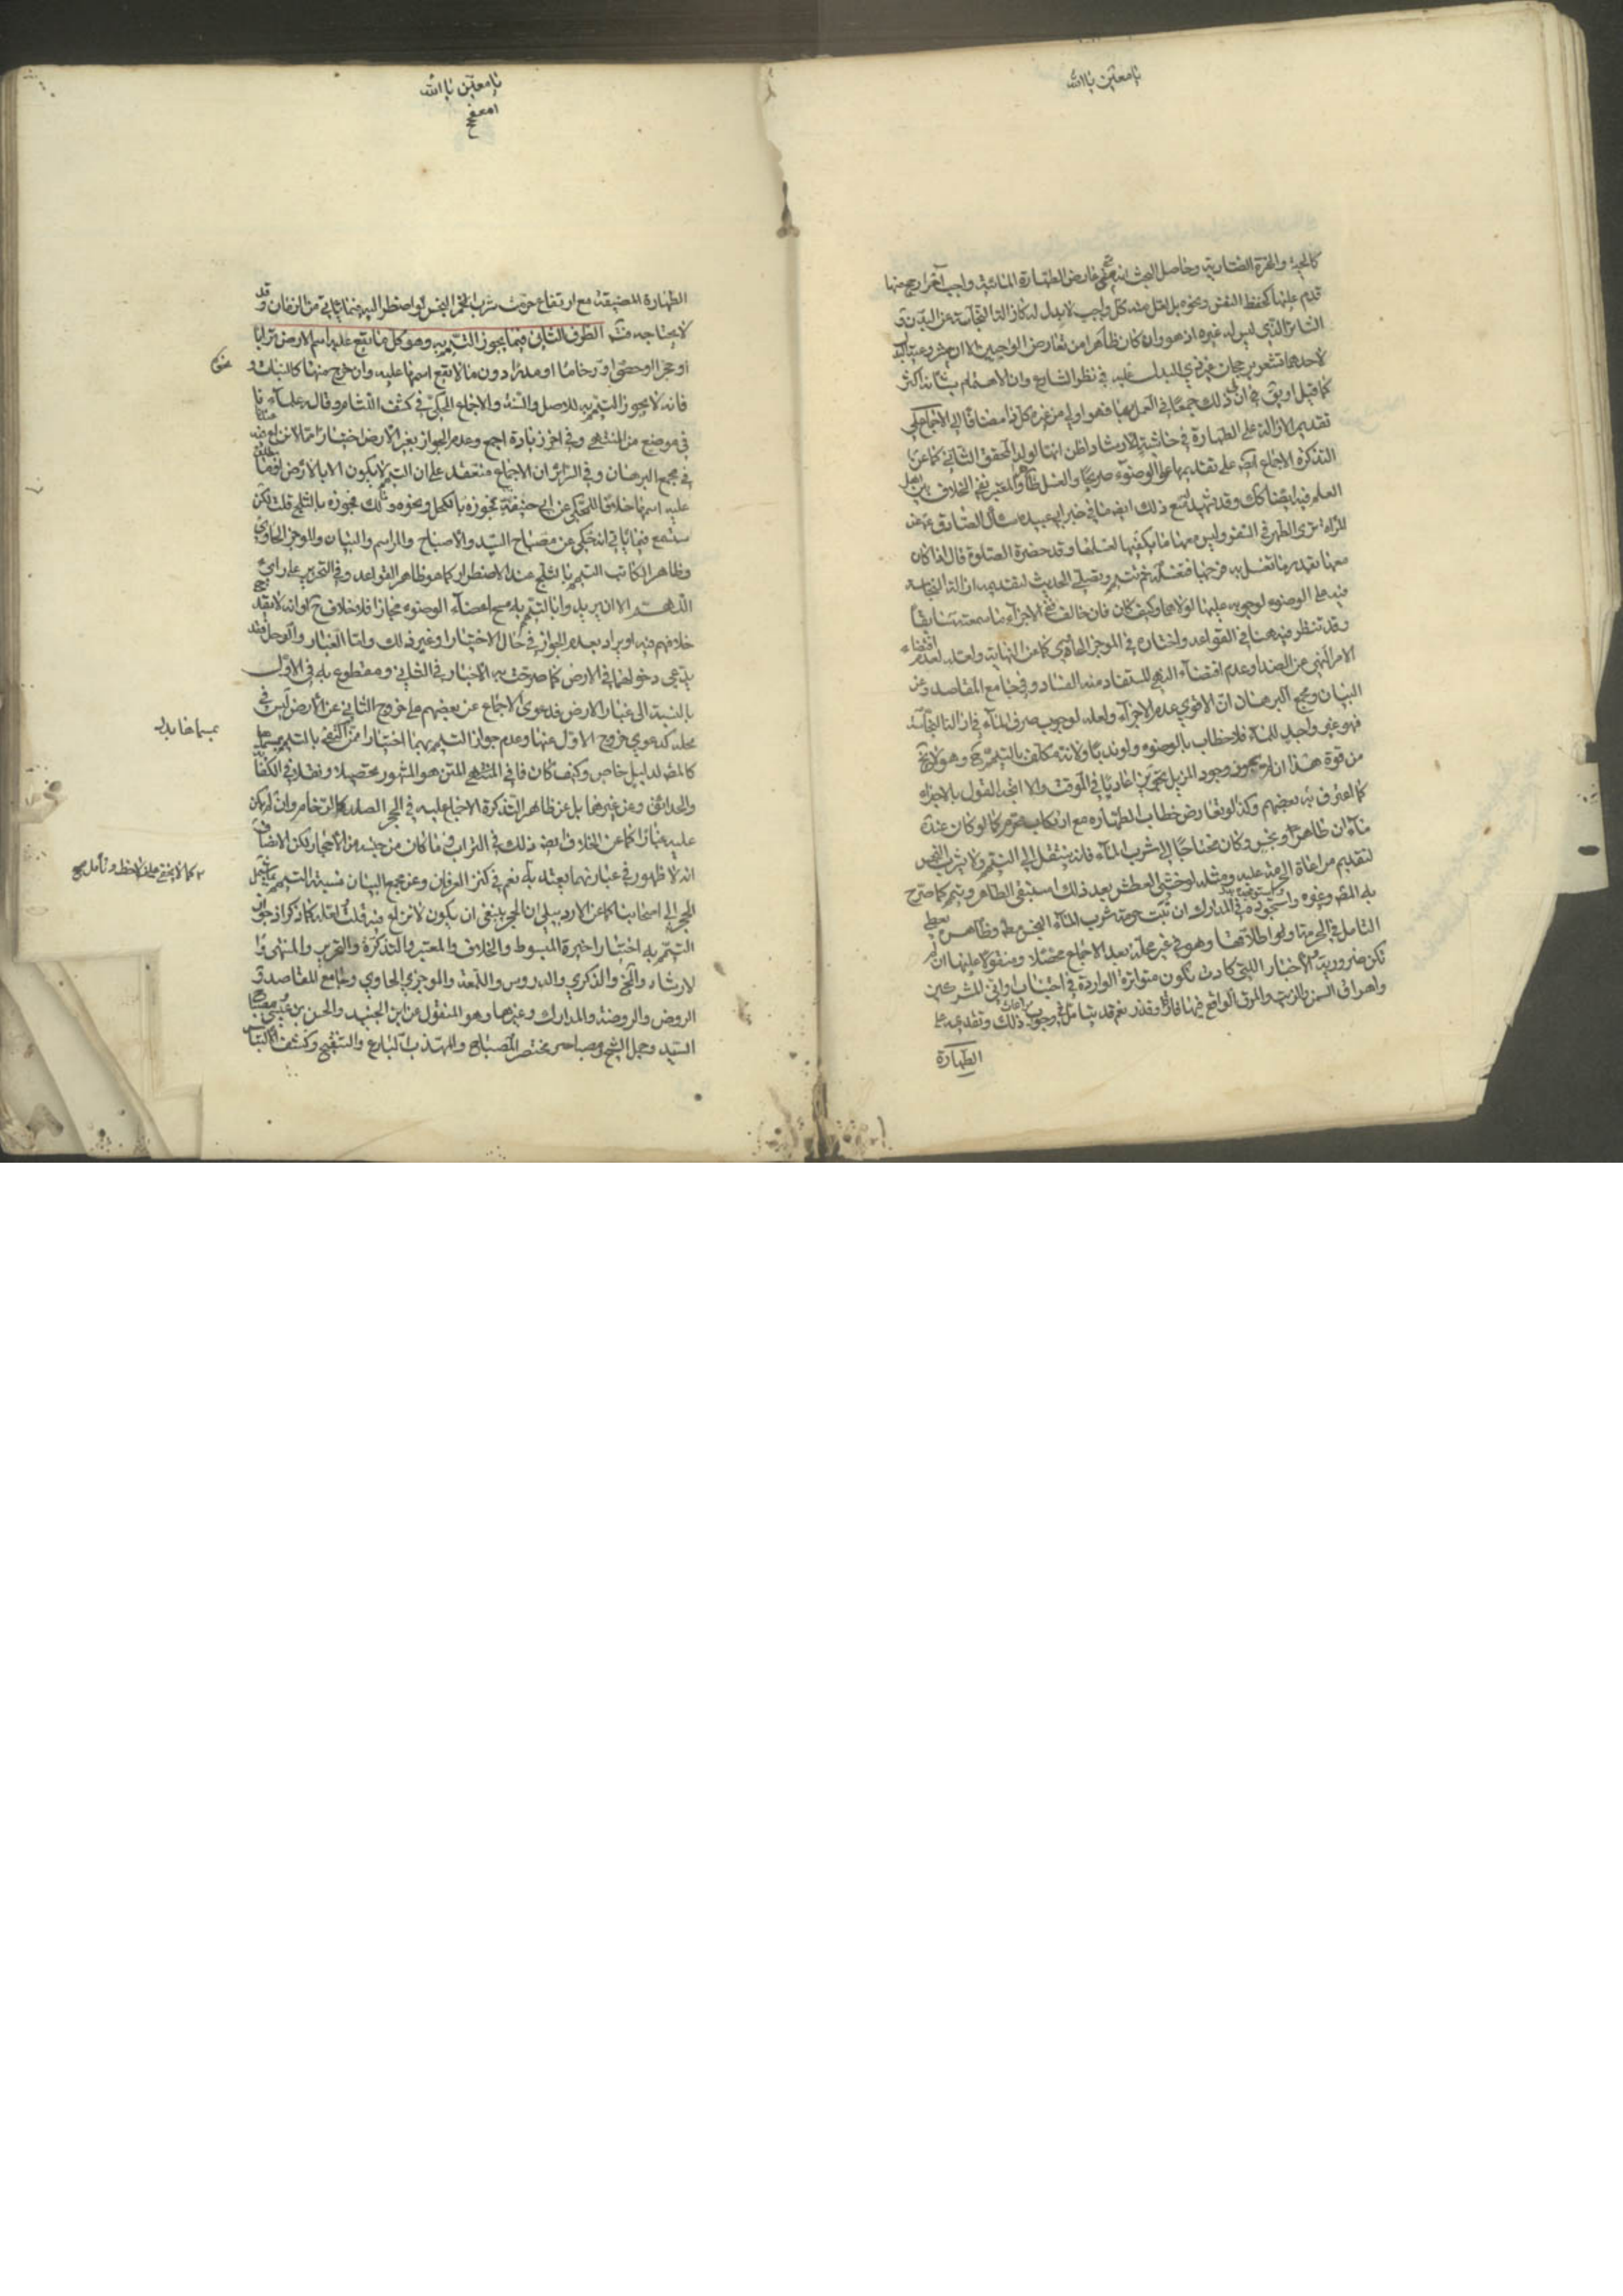 يا معين يا الله
كالجبيرة والخرقة وحاصل البحث انه متى عارض الطهارة المائية واجب آخر ارجح منها
قدم عليها كحفظ النفس ونحوه بل لعل منه كل واجب لا بدل له كازالة النجاسة عن البدن و
الساتر الذي ليس له غيره اذ هو وان كان ظاهرا من تعارض الواجبين الا ان مشروعية البدل
لاحدهما تشعر برجحان غير ذي البدل عليه في نظر الشارع وان الاهتمام بشأنه اكثر
كما قيل او يق ان في ذلك جمعا في العمل بهما فهو اولى من غيره كل ذا مضافا الى الاجماع المحكي
تقديم الازالة على الطهارة في حاشية الارشاد واظن انها لولد المحقق الثاني كما عن
التذكرة الاجماع ايضا على تقديمها على الوضوء صريحا والغسل ظاهرا والمعتبر نفي الخلاف بين اهل
العلم فيه ايضا كذلك وقد يشهد له مع ذلك ايضا ما في خبر ابي عبيدة سأل الصادق ع عن
المرأة ترى الطهر في السفر وليس معها ما يكفيها لغسلها وقد حضرة الصلوة قال اذا كان
معها بقدر ما تغسل به فرجها فتغسله ثم تتيمم وتصلي الحديث لتقديمه ازالة النجاسة
فيه على الوضوء لوجوبه عليها لولاها وكيف كان فان خالف ففي الاجزاء ما سمعته سابقا
وقد تنظر فيه هنا في القواعد واختاره في الموجز الحاوي كما عن النهاية ولعله لعدم اقتضاء
الامر النهي عن الضد او عدم اقتضاء النهي المستفاد منه الفساد وفي جامع المقاصد وعن
البيان ومجمع البرهان ان الاقوى عدم الاجزاء ولعله لوجوب صرف الماء في ازالة النجاسة
فهو غير واجد للماء فلا خطاب بالوضوء ولو ندبا ولانه مكلف بالتيمم ح وهو لا يخ
من قوة هذا ان لم يجوز وجود المزيل عادة في الوقت والا اتجه القول بالاجزاء
كما اعترف به بعضهم وكذا لو تعارض خطاب الطهارة مع ارتكاب محرم كما لو كان عنده
ماءان طاهر ونجس وكان محتاجا الى شرب الماء فانه ينتقل الى التيمم ولا يشرب النجس
لتقديم مراعاة الحرمة عليه ومثله لو خشي العطش بعد ذلك استبقى الطاهر وتيمم كما صرح
به المصنف وغيره واستجوده في المدارك ان ثبت حرمة شرب الماء النجس مطلقا وظاهره يعطي
التأمل في الحرمة او اطلاقها وهو في غير محله بعد الاجماع محصلا ومنقولا عليها ان لم
تكن ضرورية والاخبار اللتي كادت تكون متواترة الواردة في اجتناب اواني المشركين
واهراق السمن والزيت والمرق الواقع فيها فارة وقذر نعم قد يتأمل في وجوب مراعات ذلك وتقديمه على
الطهارة
يا معين يا الله
الطهارة المضيقة مع ارتفاع حرمة شرب الخمر النجس لو اضطر اليه فيما يأتي من الزمان وقد
لا يحتاجه فت الطرف الثاني فيما يجوز التيمم به وهو كل ما يقع عليه اسم الارض ترابا
او حجرا او حصى او رخاما او مدرا دون ما لا يقع اسمها عليه وان خرج منها كالنبات و
فانه لا يجوز التيمم به للاصل والسنة والاجماع المحكي في كشف اللثام وقال به علماءنا
في موضع من المنتهى وفي اخر زيادة اجمع وعدم الجواز بغير الارض اختيارا مما لا نزاع فيه عندنا
في مجمع البرهان وفي السرائر ان الاجماع منعقد على ان التيمم لا يكون الا بالارض او ما يطلق
عليه اسمها خلافا للمحكي عن ابي حنيفة فجوزه بالكحل ونحوه ومالك فجوزه بالثلج قلت لكن
ستسمع فيما يأتي انه حكي عن مصباح السيد والاصباح والمراسم والبيان والموجز الحاوي
وظاهر الكاتب التيمم بالثلج عند الاضطرار كما هو ظاهر القواعد وفي التحرير على رأي
اللهم الا ان يريدوا بالتيمم به مسح اعضاء الوضوء مجازا فلا خلاف ح او انه لا يقدح
خلافهم فيه او يراد بعدم الجواز في حال الاختيار او غير ذلك واما الغبار والوحل فقد
يدعى دخولهما في الارض كما صرحت به الاخبار في الثاني ومقطوع به في الاول
بالنسبة الى غبار الارض فدعوى الاجماع عن بعضهم على خروج الثاني عن الارض ليس في
محله كدعوى خروج الاول عنها وعدم جواز التيمم بهما اختيارا
كالمصنف لدليل خاص وكيف كان فما في المتن هو المشهور تحصيلا ونقلا في الكفاية
والحدائق وعن غيرهما بل عن ظاهر التذكرة الاجماع عليه في الحجر الصلد كالرخام وان لم يكن
عليه غبار كما عن الخلاف ايضا ذلك في التراب وما كان من جنسه من الاحجار لكن الانصاف
انه لا ظهور في عبارتهما يعتد به نعم في كنز العرفان وعن مجمع البيان نسبة التيمم
الحجر الى اصحابنا كما عن الاردبيلي ان الحجر ينبغي ان يكون لا نزاع فيه قلت ولعله كما ذكر اذ جواز
التيمم به اختيارا خيرة المبسوط والخلاف والمعتبر والتذكرة والتحرير والمنتهى وا
لارشاد والمخ والذكرى والدروس واللمعة والموجز الحاوي وجامع المقاصد و
الروض والروضة والمدارك وغيرها وهو المنقول عن ابن الجنيد والحسن بن عيسى ومصباح
السيد وجمل الشيخ ومصباحه ومختصر المصباح والمهذب البارع والتنقيح وكشف التباس
كما لا يخفى على من لاحظ وتأمل صح